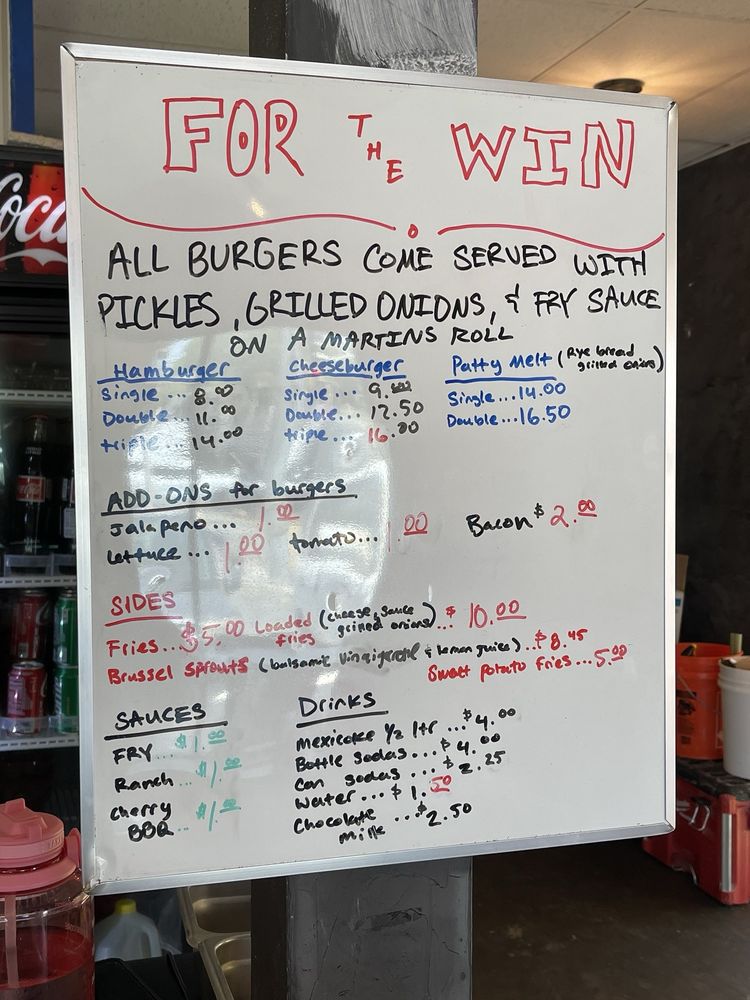 FOR THE WIN
ALL BURGERS COME SERVED WITH
PICKLES, GRILLED ONIONS, & FRY SAUCE
ON A MARTINS ROLL
Hamburger
Single ... 8.00
Double ... 11.00
triple ... 14.00
Cheeseburger
Single ... 9.00
Double... 12.50
triple ... 16.00
Patty Melt (Rye bread grilled onions)
Single ... 14.00
Double ... 16.50
ADD-ONS for burgers
Jalapeno ... 1.00
Lettuce ... 1.00
tomato ... 1.00
Bacon $2.00
SIDES
Fries ... $5.00
Loaded fries (cheese, sauce grilled onions) ... $10.00
Brussel Sprouts (balsamic vinaigarette & lemon juice) .. $8.45
Sweet Potato Fries ... 5.00
SAUCES
FRY ... $1.00
Ranch ... $1.00
Cherry BBQ ... $1.00
Drinks
Mexicoke 1/2 ltr ... $4.00
Bottle sodas ... $4.00
Can sodas ... $2.25
Water ... $1.50
Chocolate milk ... $2.50
Coca